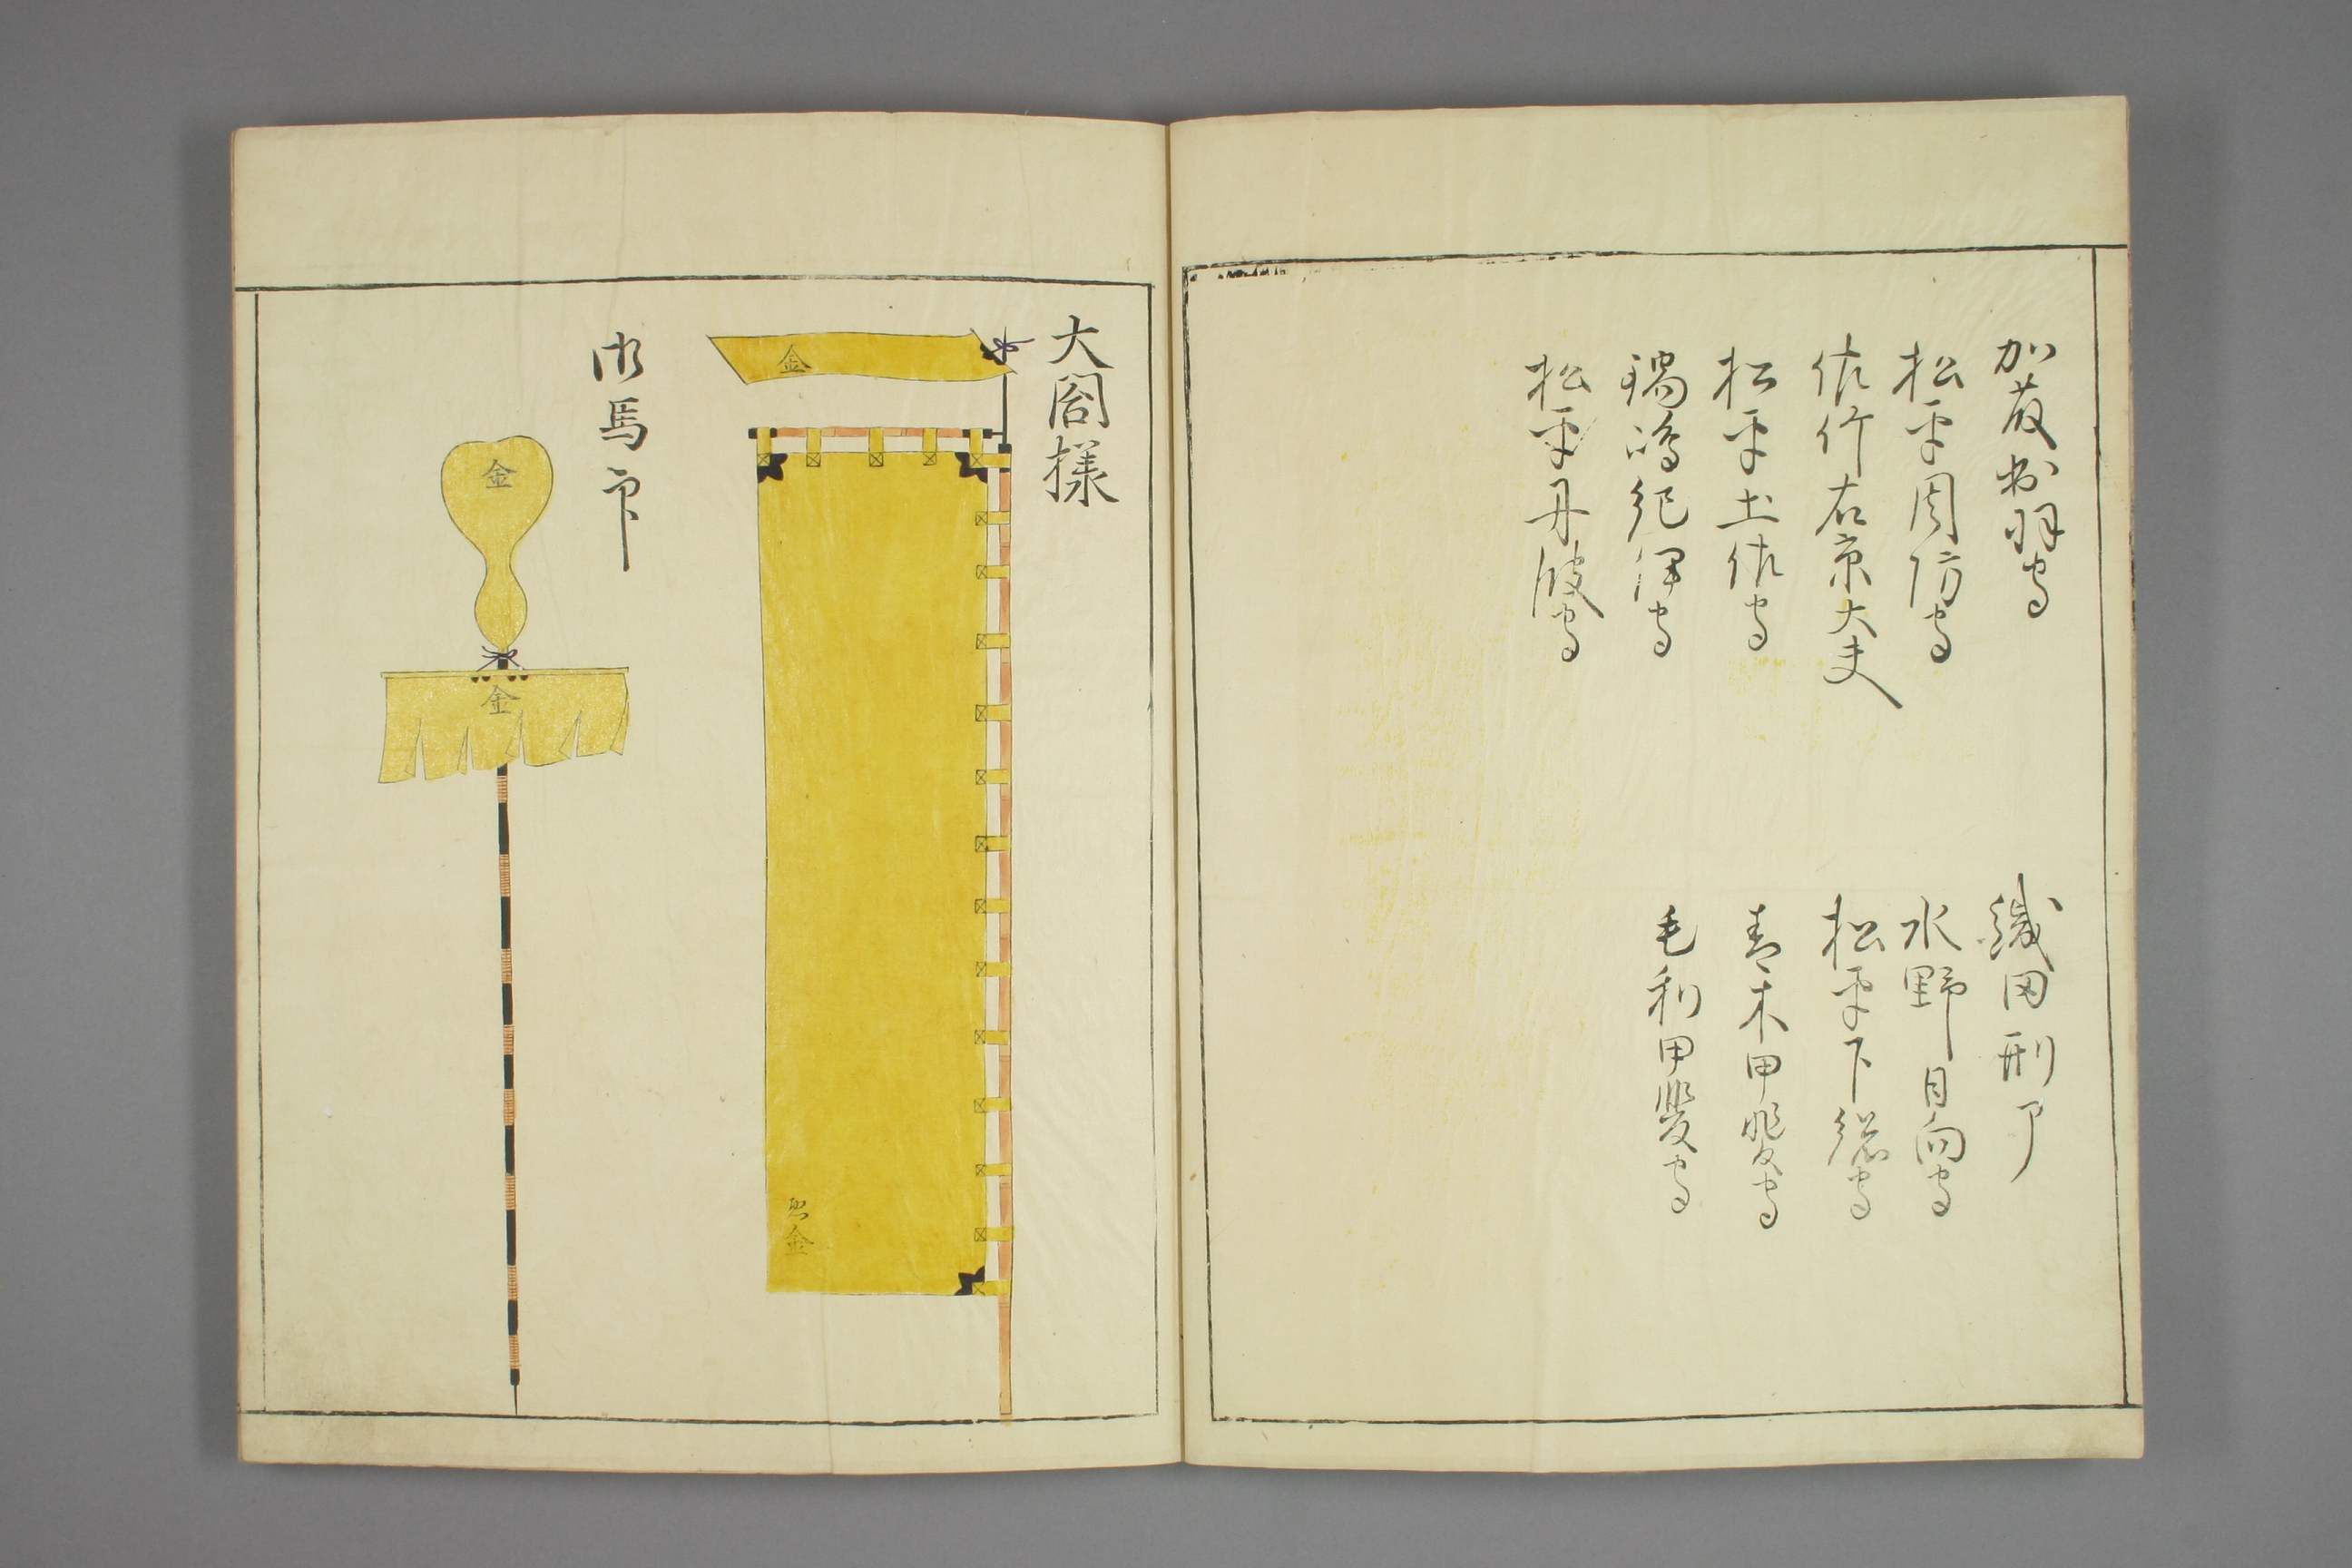 加藤出羽守
松平周防守
佐竹右京大夫
松平土佐守
鍋嶋紀伊守
松平丹波守
織田刑ア
水野日向守
松平下総守
青木甲斐守
毛利甲斐守
大閤様
金
惣金
御馬印
金
金